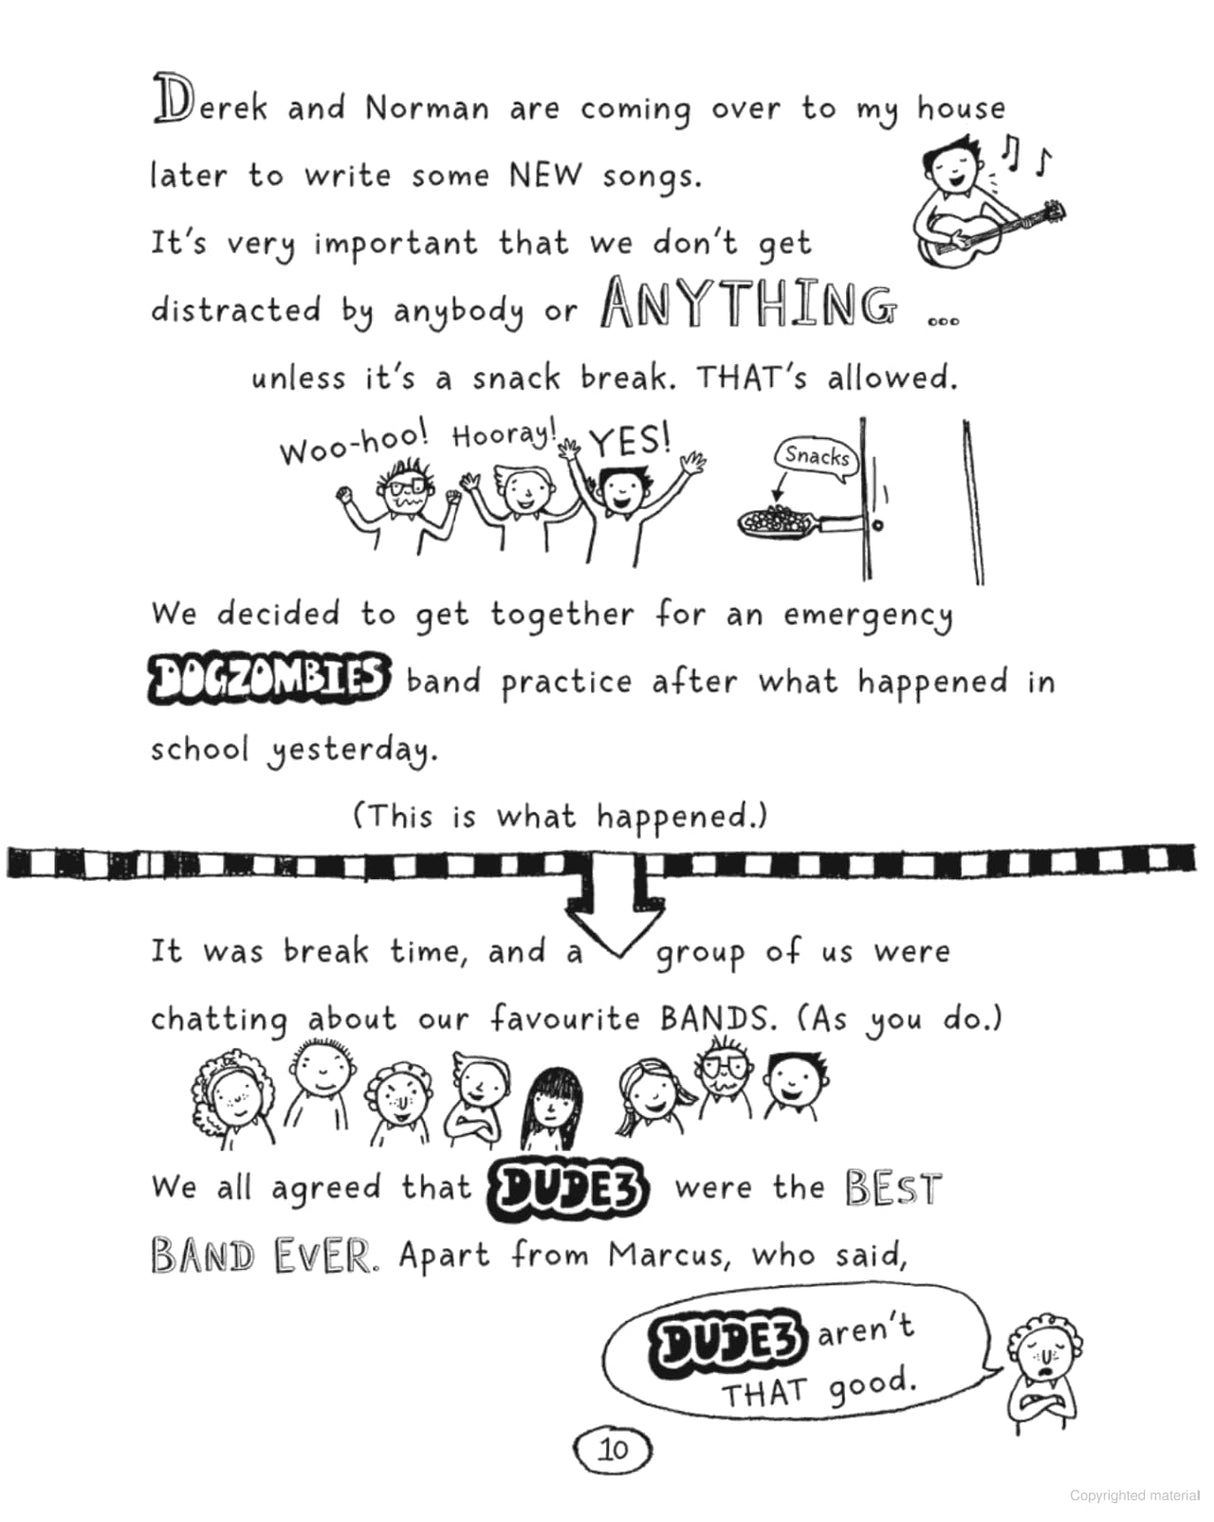 Derek and Norman are coming over to my house
later to write some NEW songs.
It's very important that we don't get
distracted by anybody or ANYTHING ...
unless it's a snack break. THAT's allowed.
Woo-hoo! Hooray! YES!
Snacks
We decided to get together for an emergency
DOGZOMBIES band practice after what happened in
school yesterday.
(This is what happened.)
It was break time, and a group of us were
chatting about our favourite BANDS. (As you do.)
We all agreed that DUDE3 were the BEST
BAND EVER. Apart from Marcus, who said,
DUDE3 aren't
THAT good.
10
Copyrighted material